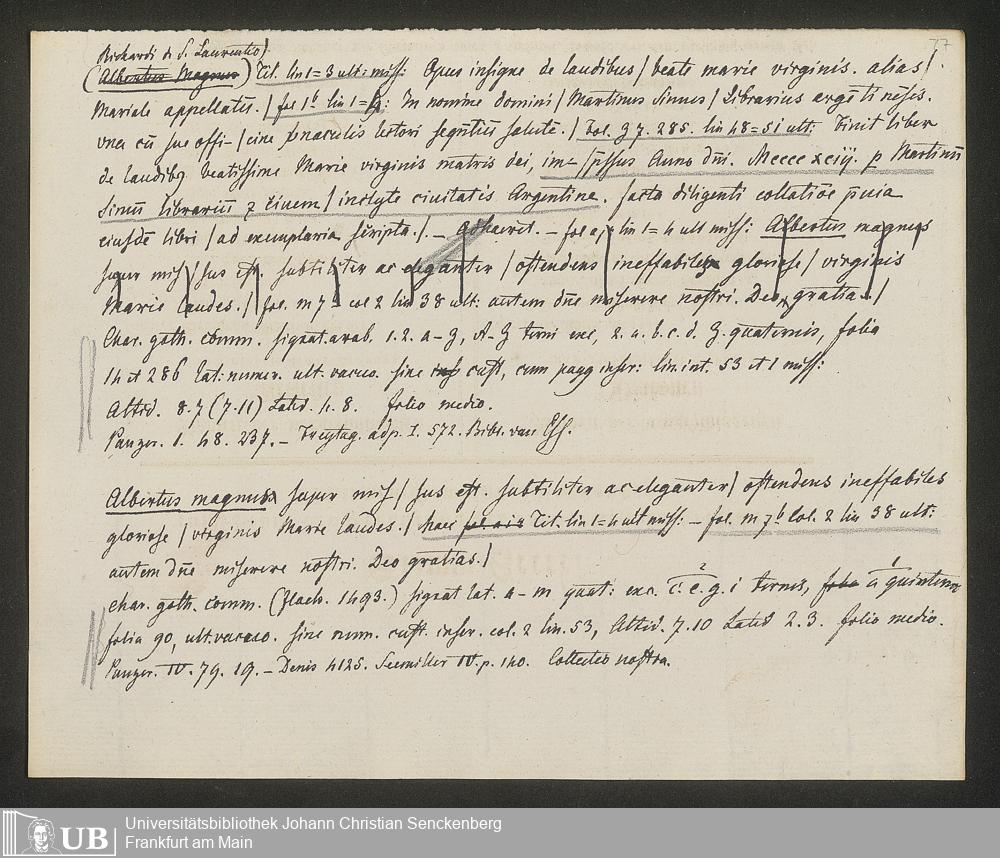 77
Richardi de S. Laurentio/.
(Albertus Magnus) Tit. lin 1=3 ult: miss: Opus insigne de laudibus / beate marie virginis. alias /
Mariale appellatū. / fol 1b lin 1= : In nomine domini / Martinus Sinner / Librarius argētinēsis.
vna cū suo offi- / cine lectori salutē. / Fol. 285. lin 48=51 ult: Finit liber
de laudibꝫ beatissime Marie virginis matris dei, im- / pssus Anno dñi. Mcccc xciij. p Martinū
librariū ꝛ civem / inclyte ciuitatis Argentine. facta diligenti collatiōe
eiusdē libri / ad exemplaria scripta. /. _ adhaeret. – fol a, lin 1=4 ult miss: Albertus magnus
super mis / sus est: subtiliter ac eleganter / ostendens / ineffabiles gloriose / virginis
Marie laudes. / fol. m 7b col 2 lin 38 ult: autem dñe miserere nostri. Deo gratias. /
Char. goth. comm. signat. arab. 1. 2. a-z, A-Z terni exc, 2. a. b. c. d. Z. quaternis, folia
14 et 286 lat: numer. ult. vacuo. sine cust, cum pagg inscr: lin. int. 53 et 1 miss:
Altid. 8.7 (7.11) Latid. 4.8. folio medio.
Panzer. 1. 48. 237. – Freytag. adp. I. 572. Bibl. van Ess.
Albertus magnus super mis / sus est. subtiliter ac eleganter / ostendens ineffabiles
gloriose / virginis Marie laudes. / haec Tit. lin 1=4 ult miss: – fol. m 7b Col. 2 lin 38 ult:
autem dñe miserere nostri. Deo gratias. /
char. goth. comm. (Flach. 1493.) signat lat. a-m quat: exc. c. e. g. i ternis, a quintern
folia 90, ult. vacuo. sine num. cust. inscr. col. 2 lin. 53, Altid. 7.10 Latid 2.3. folio medio.
Panzer. IV. 79. 19. – Denis 4125. Seemiller IV. p. 140. Collectio nostra.
UB
Universitätsbibliothek Johann Christian Senckenberg
Frankfurt am Main